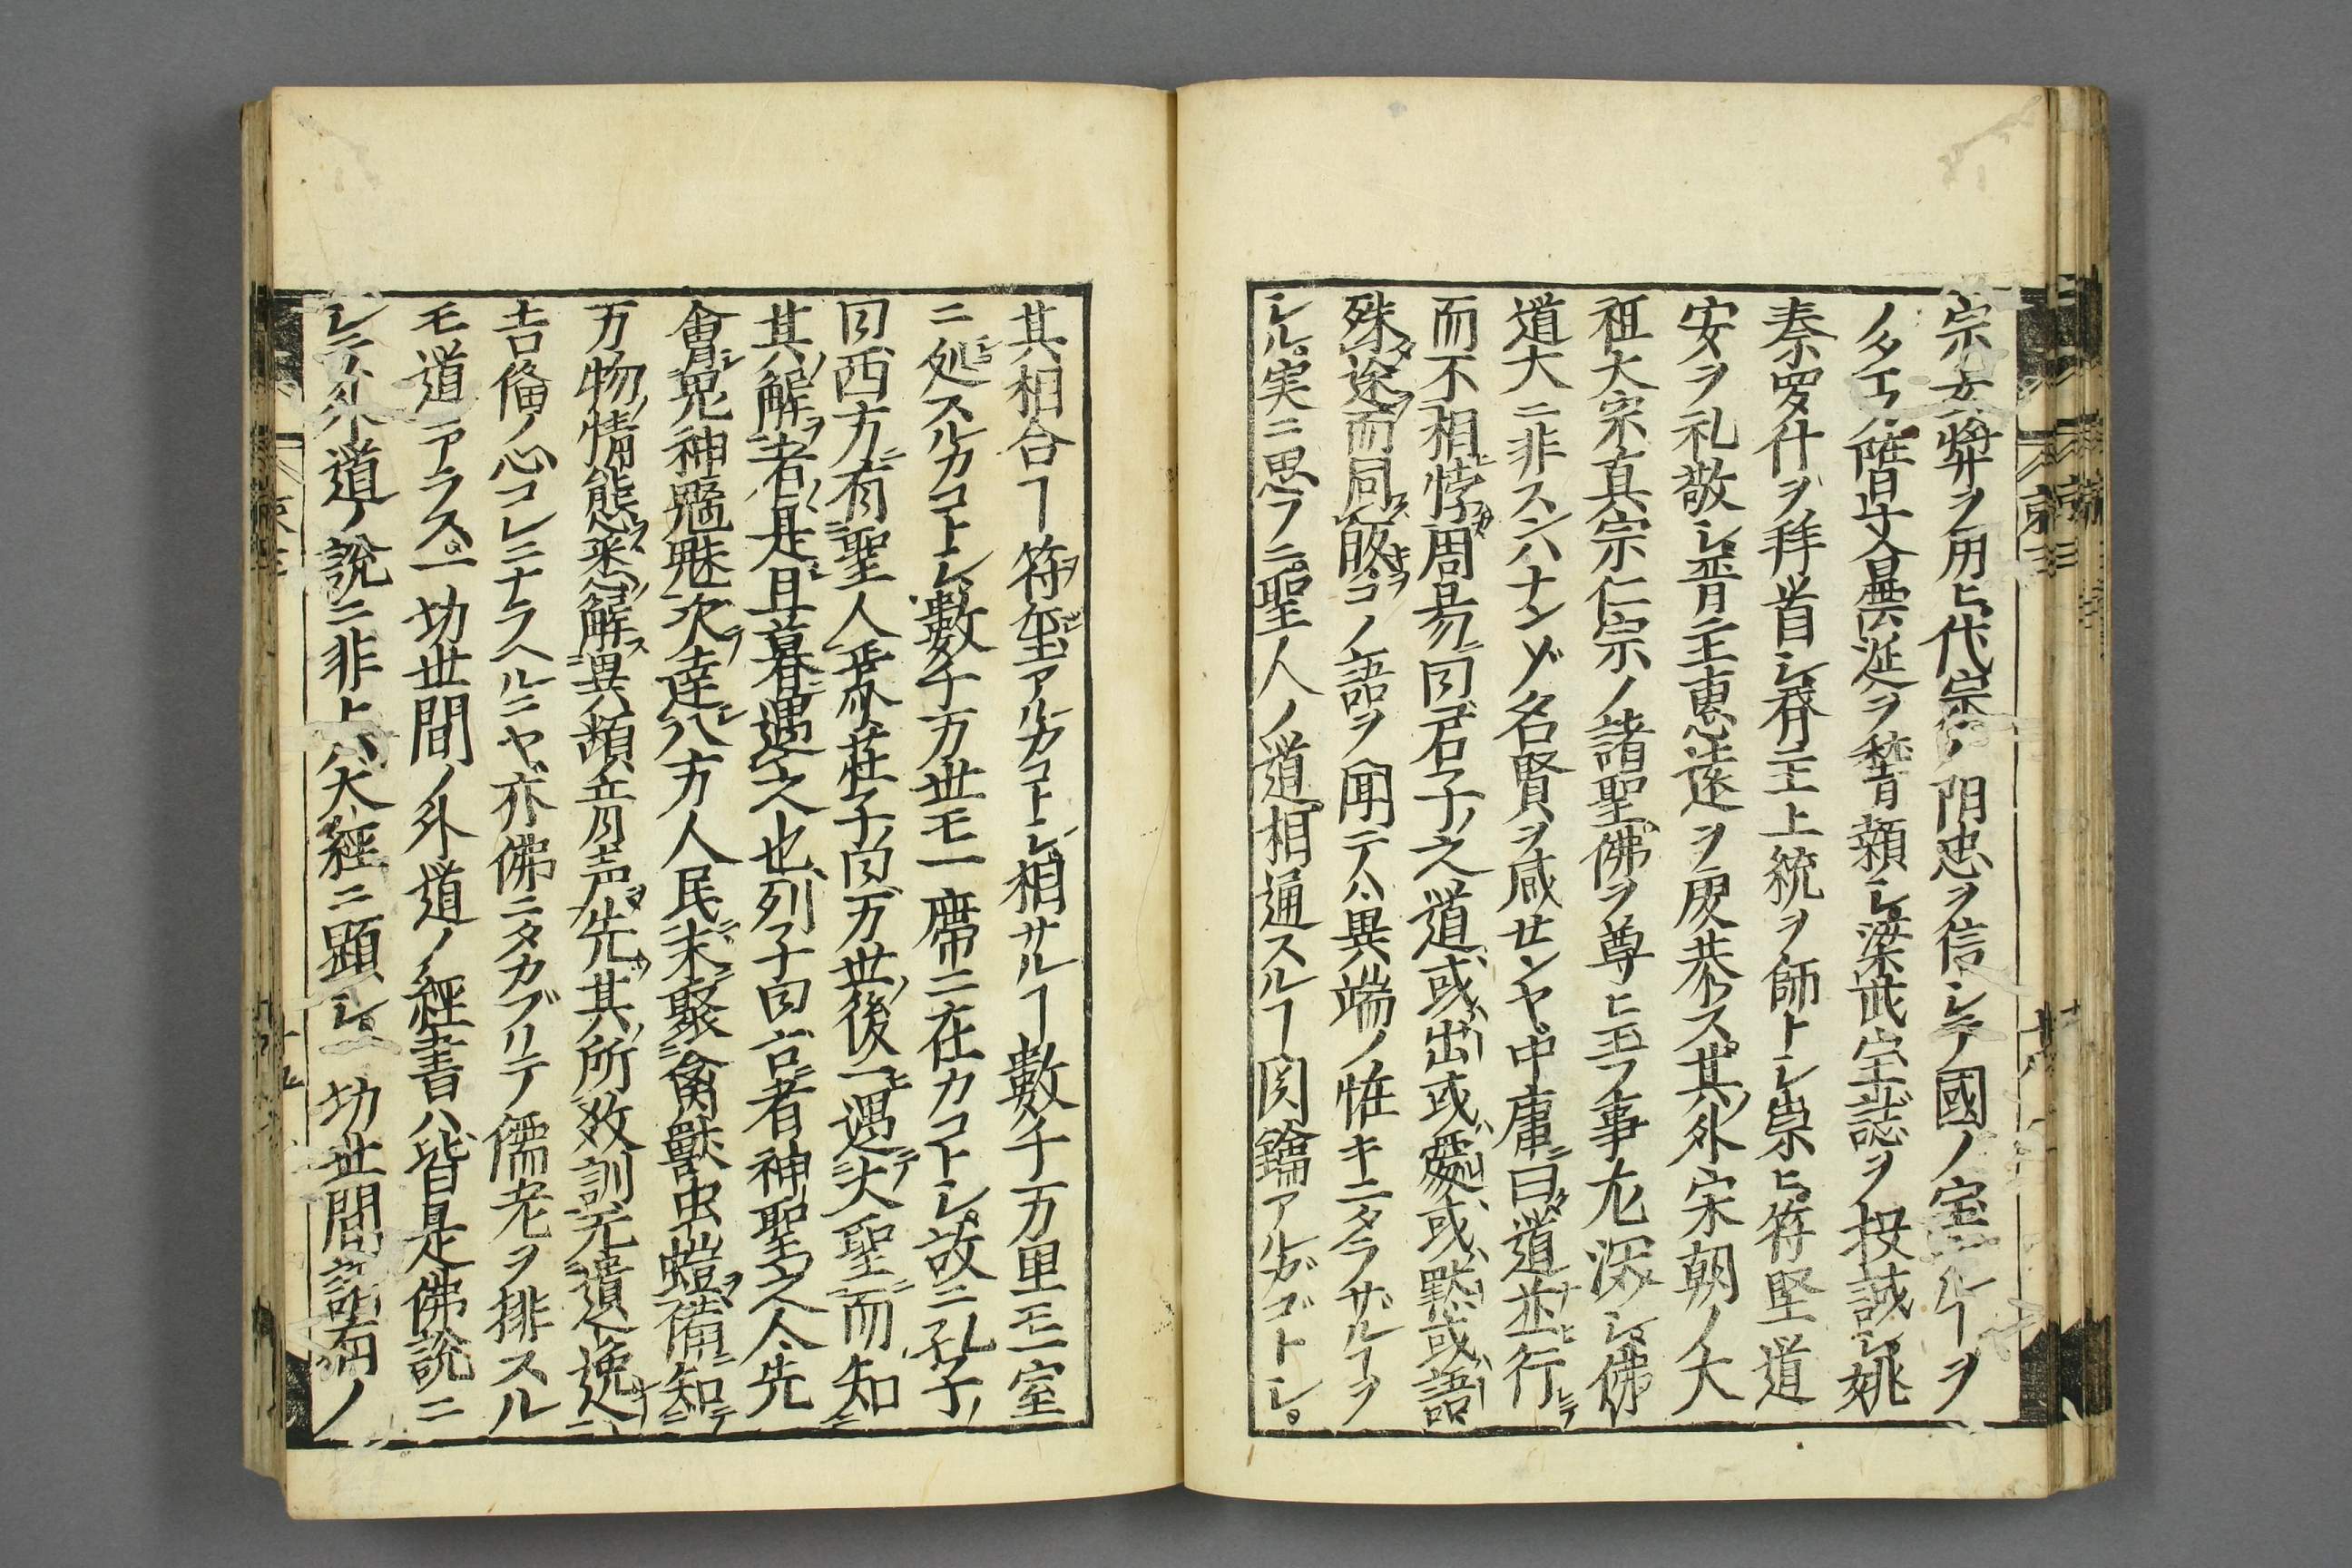 宗女壻ヲ用ヒ代宗ノ陰忠ヲ信シテ國ノ宝ルヿヲ
ノタエ隋文曇延ヲ稽顙シ梁武宝誌ヲ投誠シ姚
秦羅什ヲ拜首シ齊主上統ヲ師トシ崇ヒ符堅道
安ヲ礼敬シ晋王惠遠ヲ虔恭ス其外宋朝ノ大
祖大宗真宗仁宗ノ諸聖佛ヲ尊ヒ玉フ事尤深シ佛
道大ニ非スンハナンゾ名賢ヲ感センヤ中庸曰道並行
而不相悖周易曰君子之道或出或處或默或語
殊途而同皈コノ語ヲ聞テハ異端ノ恠キニタラザルヿヲ
シル実ニ思フニ聖人ノ道相通スルヿ関鑰アルガゴトシ
其相合ヿ符璽アルカコトシ相サルヿ數千万里モ一室
ニ処スルカコトシ數千万世モ一席ニ在カコトシ故ニ孔子
曰西方有聖人焉莊子曰万世後一遇大聖而知
其解者是且暮遇之也列子曰言者神聖之人先
會鬼神魑魅次達八方人民末聚禽獸虫螘備知
万物情態悉解異類音声先其所敎訓无遺逸
吉備ノ心コレニナラヘルニヤ亦佛ニタカブリテ儒老ヲ排スル
モ道ニアラス一切世間ノ外道ノ經書ハ皆是佛説ニ
シテ外道ノ説ニ非トハ大經ニ顕シ一切世間ノ